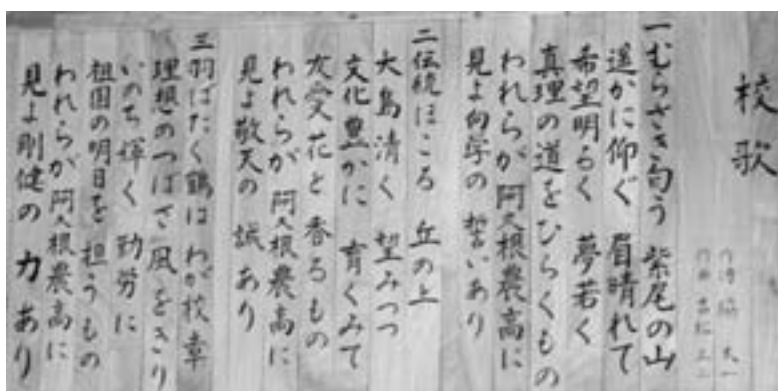 校歌
一むらさき匂う 紫尾の山
遥かに仰ぐ 眉晴れて
希望明るく 夢若く
真理の道をひらくもの
われらが阿久根農高に
見よ向学の 誓いあり
二伝統ほこる 丘の上
大島清く 望みつつ
文化豊かに 育くみて
友愛花と香るもの
われらが阿久根農高に
見よ敬天の 誠あり
三羽ばたく鶴は わが校章
理想のつばさ 風をきり
いのち輝く 勤労に
祖国の明日を 担うもの
われらが阿久根農高に
見よ剛健の 力あり